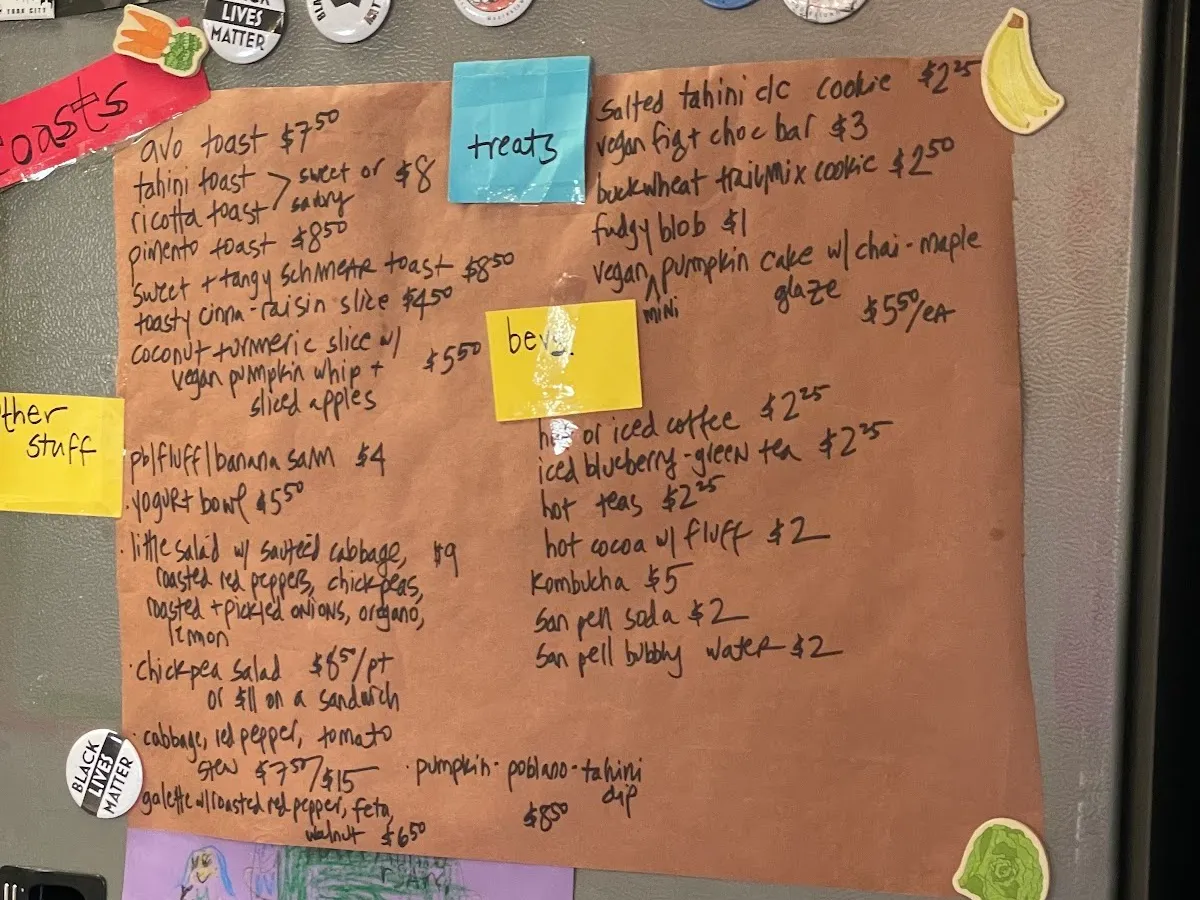 YORK CITY
BLACK
LIVES
MATTER
oasts
avo toast $7.50
tahini toast
ricotta toast
sweet or
savory
$8
pimento toast $8.50
sweet + tangy schmear toast $8.50
toasty cinna-raisin slice $4.50
coconut turmeric slice w/
vegan pumpkin whip +
sliced apples
$5.50
ther
stuff
pb/fluff/banana sam $4
· yogurt bowl $5.50
· little salad w/ sauteed cabbage, $9
roasted red peppers, chickpeas,
roasted + pickled onions, oregano,
lemon
· chickpea salad $8.50/pt
or $11 on a sandwich
· cabbage, red pepper, tomato
stew $7.50/$15
galette w/ roasted red pepper, feta,
walnut $6.50
· pumpkin-poblano-tahini
dip
$8.50
treats
salted tahini c/c cookie $2.25
vegan fig + choc bar $3
buckwheat trailmix cookie $2.50
fudgy blob $1
vegan mini pumpkin cake w/ chai-maple
glaze
$5.50/ea
bevs.
hot or iced coffee $2.25
iced blueberry-green tea $2.25
hot teas $2.25
hot cocoa w/ fluff $2
kombucha $5
san pell soda $2
san pell bubbly water $2
BLACK
LIVES
MATTER